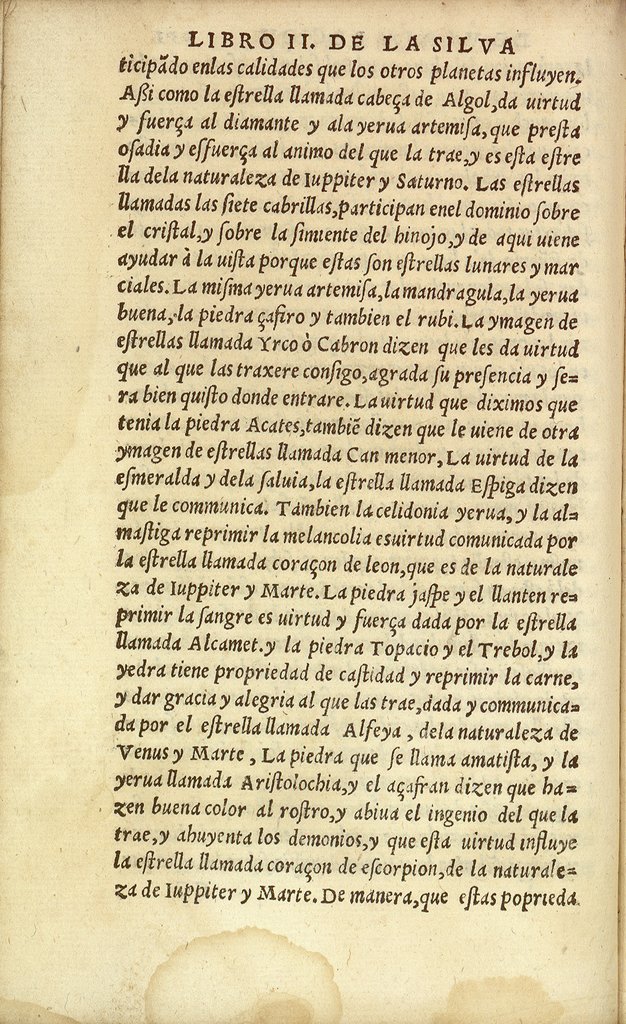 LIBRO II. DE LA SILVA
ticipãdo enlas calidades que los otros planetas influyen.
Aßi como la eſtrella llamada cabeça de Algol,da uirtud
y fuerça al diamante y ala yerua artemiſa,que preſta
oſadia y eſfuerça al animo del que la trae,y es eſta eſtre
lla dela naturaleza de Iuppiter y Saturno. Las eſtrellas
llamadas las ſiete cabrillas,participan enel dominio ſobre
el criſtal,y ſobre la ſimiente del hinojo,y de aqui uiene
ayudar à la uiſta porque eſtas ſon eſtrellas lunares y mar
ciales. La miſma yerua artemiſa,la mandragula,la yerua
buena, la piedra çafiro y tambien el rubi. La ymagen de
eſtrellas llamada Yrco ò Cabron dizen que les da uirtud
que al que las traxere conſigo,agrada ſu preſencia y ſe=
ra bien quiſto donde entrare. La uirtud que diximos que
tenia la piedra Acates,tambiẽ dizen que le uiene de otra
ymagen de eſtrellas llamada Can menor, La uirtud de la
eſmeralda y dela ſaluia,la eſtrella llamada Eſpiga dizen
que le communica. Tambien la celidonia yerua, y la al=
maſtiga reprimir la melancolia es uirtud comunicada por
la eſtrella llamada coraçon de leon,que es de la naturale
za de Iuppiter y Marte. La piedra jaſpe y el llanten re=
primir la ſangre es uirtud y fuerça dada por la eſtrella
llamada Alcamet.y la piedra Topacio y el Trebol,y la
yedra tiene propriedad de caſtidad y reprimir la carne,
y dar gracia y alegria al que las trae,dada y communica=
da por el eſtrella llamada Alfeya , dela naturaleza de
Venus y Marte , La piedra que ſe llama amatiſta, y la
yerua llamada Ariſtolochia,y el açafran dizen que ha=
zen buena color al roſtro,y abiua el ingenio del que la
trae,y ahuyenta los demonios,y que eſta uirtud influye
la eſtrella llamada coraçon de eſcorpion,de la naturale=
za de Iuppiter y Marte. De manera,que eſtas poprieda